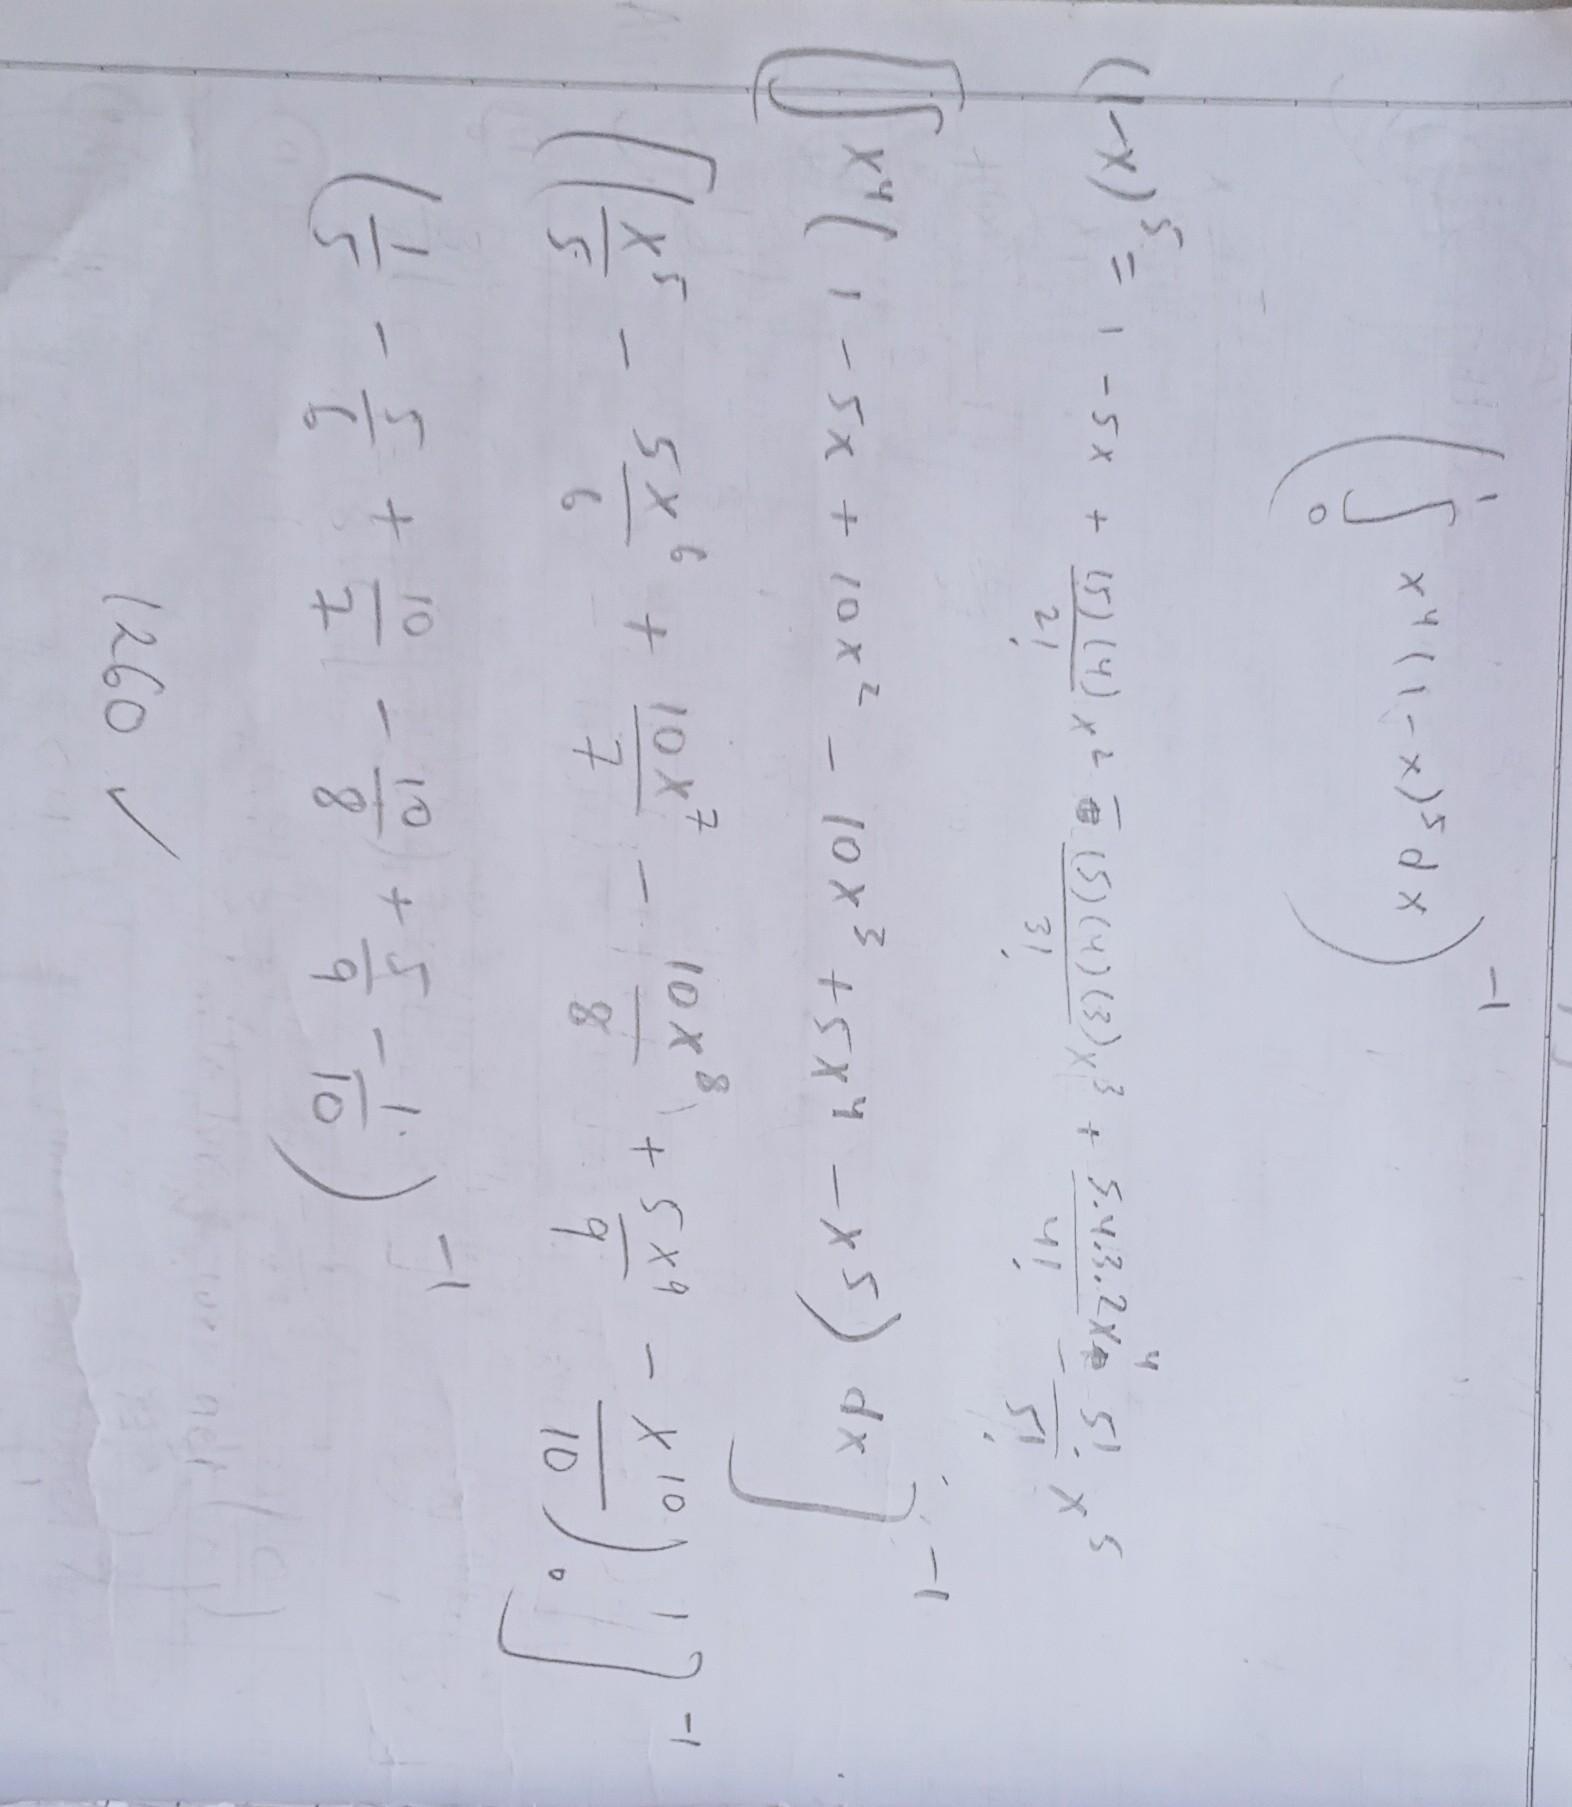 ( ∫₀¹ x⁴(1-x)⁵ dx )⁻¹
(1-x)⁵ = 1 - 5x + (5)(4)/2! x² - (5)(4)(3)/3! x³ + 5.4.3.2/4! x⁴ - 5!/5! x⁵
[∫ x⁴(1 - 5x + 10x² - 10x³ + 5x⁴ - x⁵) dx]⁻¹
[(x⁵/5 - 5x⁶/6 + 10x⁷/7 - 10x⁸/8 + 5x⁹/9 - x¹⁰/10)₀¹]⁻¹
(1/5 - 5/6 + 10/7 - 10/8 + 5/9 - 1/10)⁻¹
1260 ✓